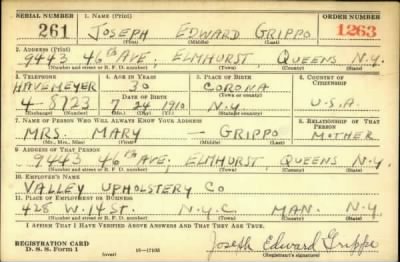 SERIAL NUMBER 1. NAME (Print) ORDER NUMBER
261 JOSEPH EDWARD GRIPPO 1263
(First) (Middle) (Last)
2. ADDRESS (Print)
9443 46th AVE, ELMHURST, QUEENS N.Y.
(Number and street or R. F. D. number) (Town) (County) (State)
3. TELEPHONE 4. AGE IN YEARS 5. PLACE OF BIRTH 6. COUNTRY OF CITIZENSHIP
HAVEMEYER 30 CORONA
(Exchange) DATE OF BIRTH (Town or county)
4-8723 7 24 1910 N.Y U.S.A.
(Number) (Mo.) (Day) (Yr.) (State or country)
7. NAME OF PERSON WHO WILL ALWAYS KNOW YOUR ADDRESS 8. RELATIONSHIP OF THAT PERSON
MRS. MARY — GRIPPO MOTHER
(Mr., Mrs., Miss) (First) (Middle) (Last)
9. ADDRESS OF THAT PERSON
9443 46th AVE; ELMHURST QUEENS N.Y.
(Number and street or R. F. D. number) (Town) (County) (State)
10. EMPLOYER'S NAME
VALLEY UPHOLSTERY CO
11. PLACE OF EMPLOYMENT OR BUSINESS
428 W. 14 ST. N.Y.C. MAN. N.Y
(Number and street or R. F. D. number) (Town) (County) (State)
I AFFIRM THAT I HAVE VERIFIED ABOVE ANSWERS AND THAT THEY ARE TRUE.
REGISTRATION CARD
D. S. S. Form 1 (over) 16—17105 Joseph Edward Grippo
(Registrant's signature)